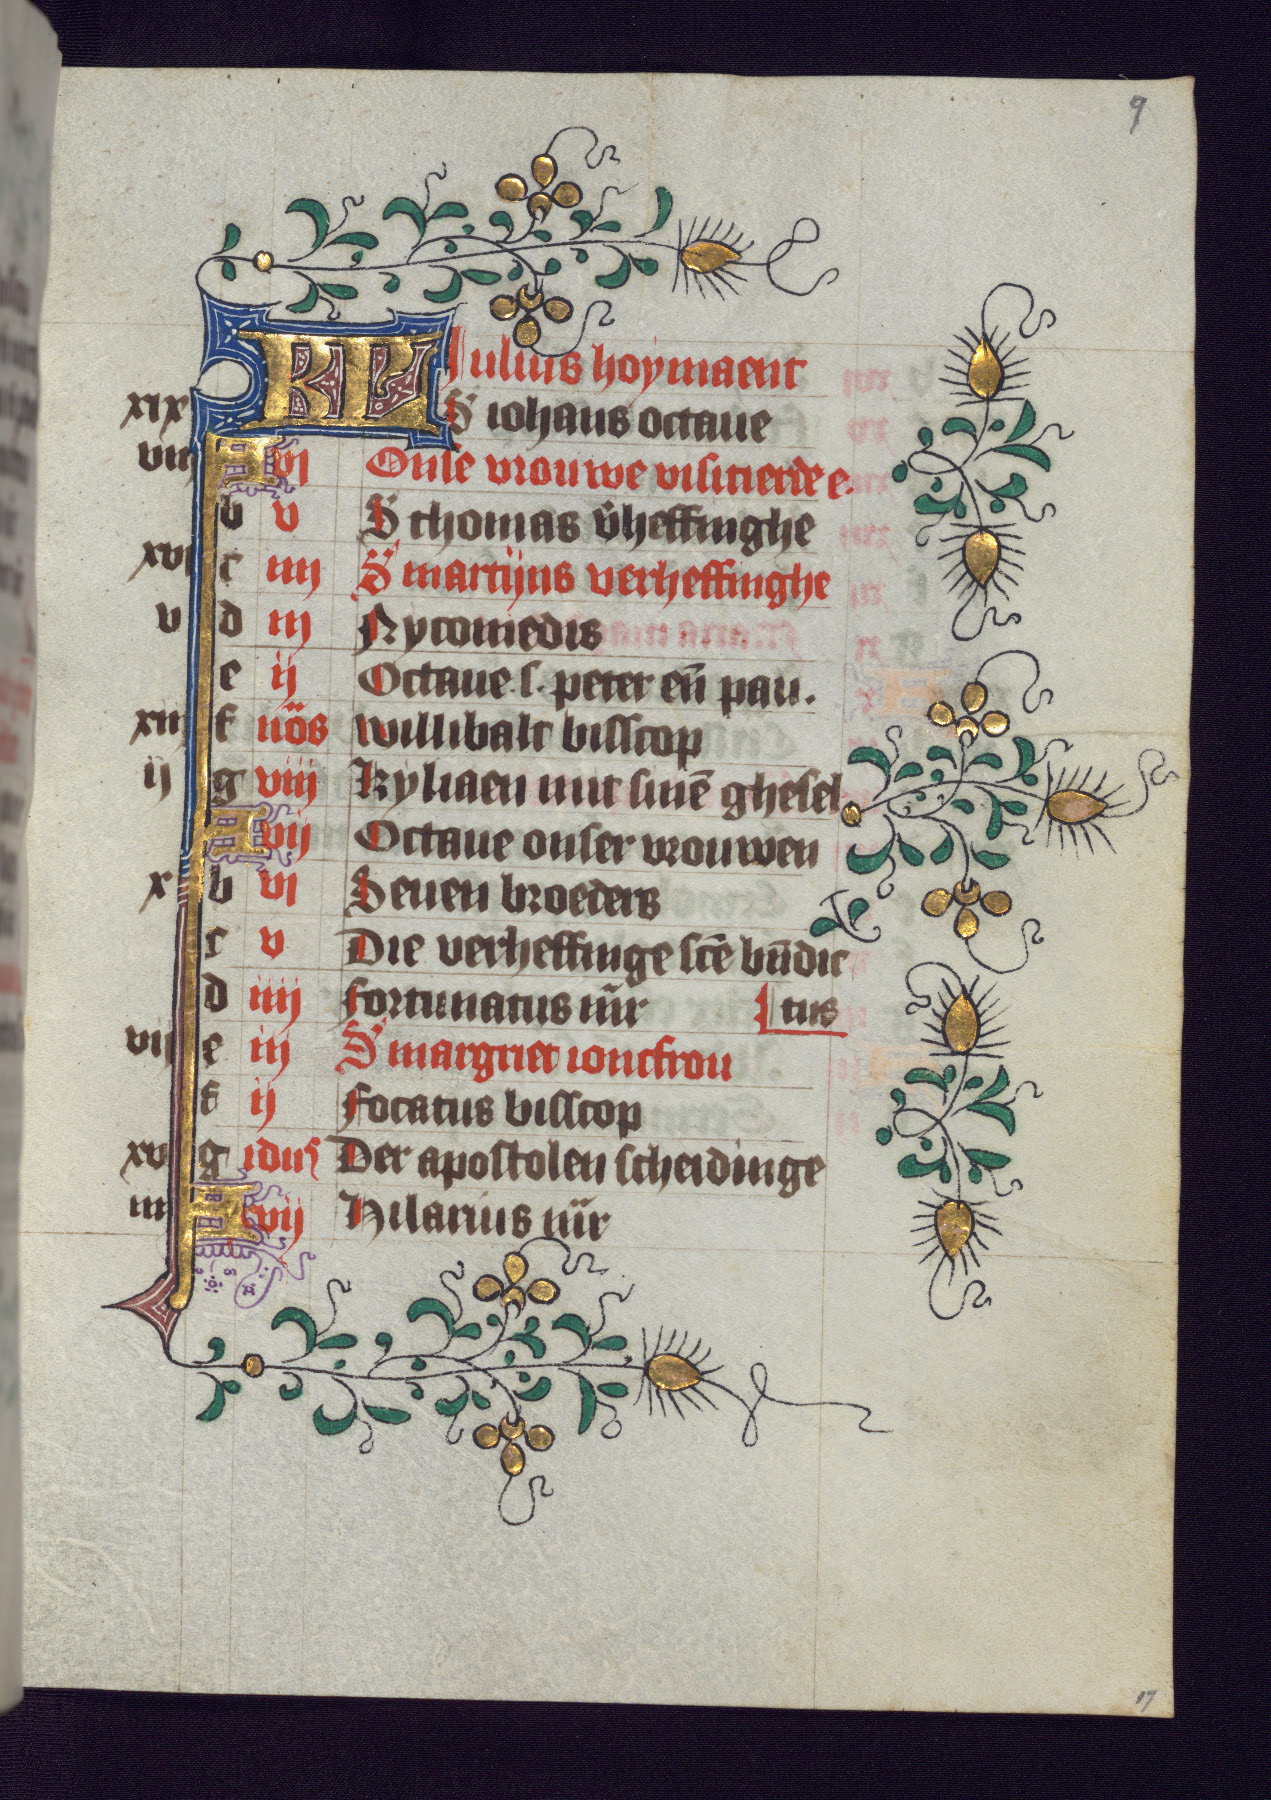 9
KL Julius hoymaent
xix S iohans octaue
viij A vj Onse vrouwe visitierde e.
b v S thomas v̄heffinghe
xvi c iiij S martijns verheffinghe
v d iij Nycomedis
e ij Octaue s. peter eñ pau.
xiij f nōs willibalt bisscop
ij g viij Kyliaen mit sinē ghesel
A vij Octaue onser vrouwen
x b vi Seuen broeders
c v Die verheffinge scē bn̄dic
d iiij fortunatus mr̄ tus
vij e iij S margriet ioncfrou
f ij focatus bisscop
xv g idus Der apostolen scheidinge
iiij A vij Hilarius mr̄
17